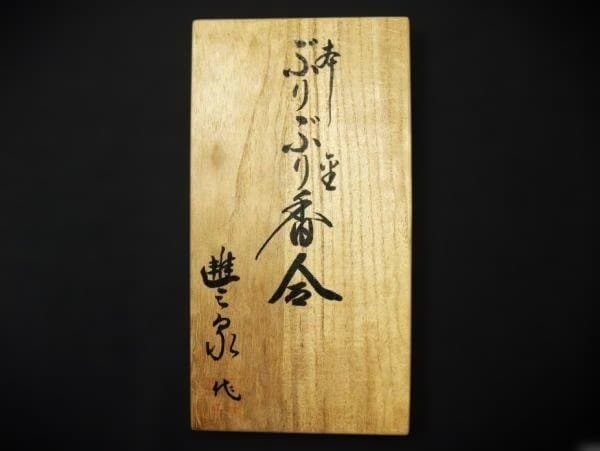 本金
ぶりぶり香合
豊泉作